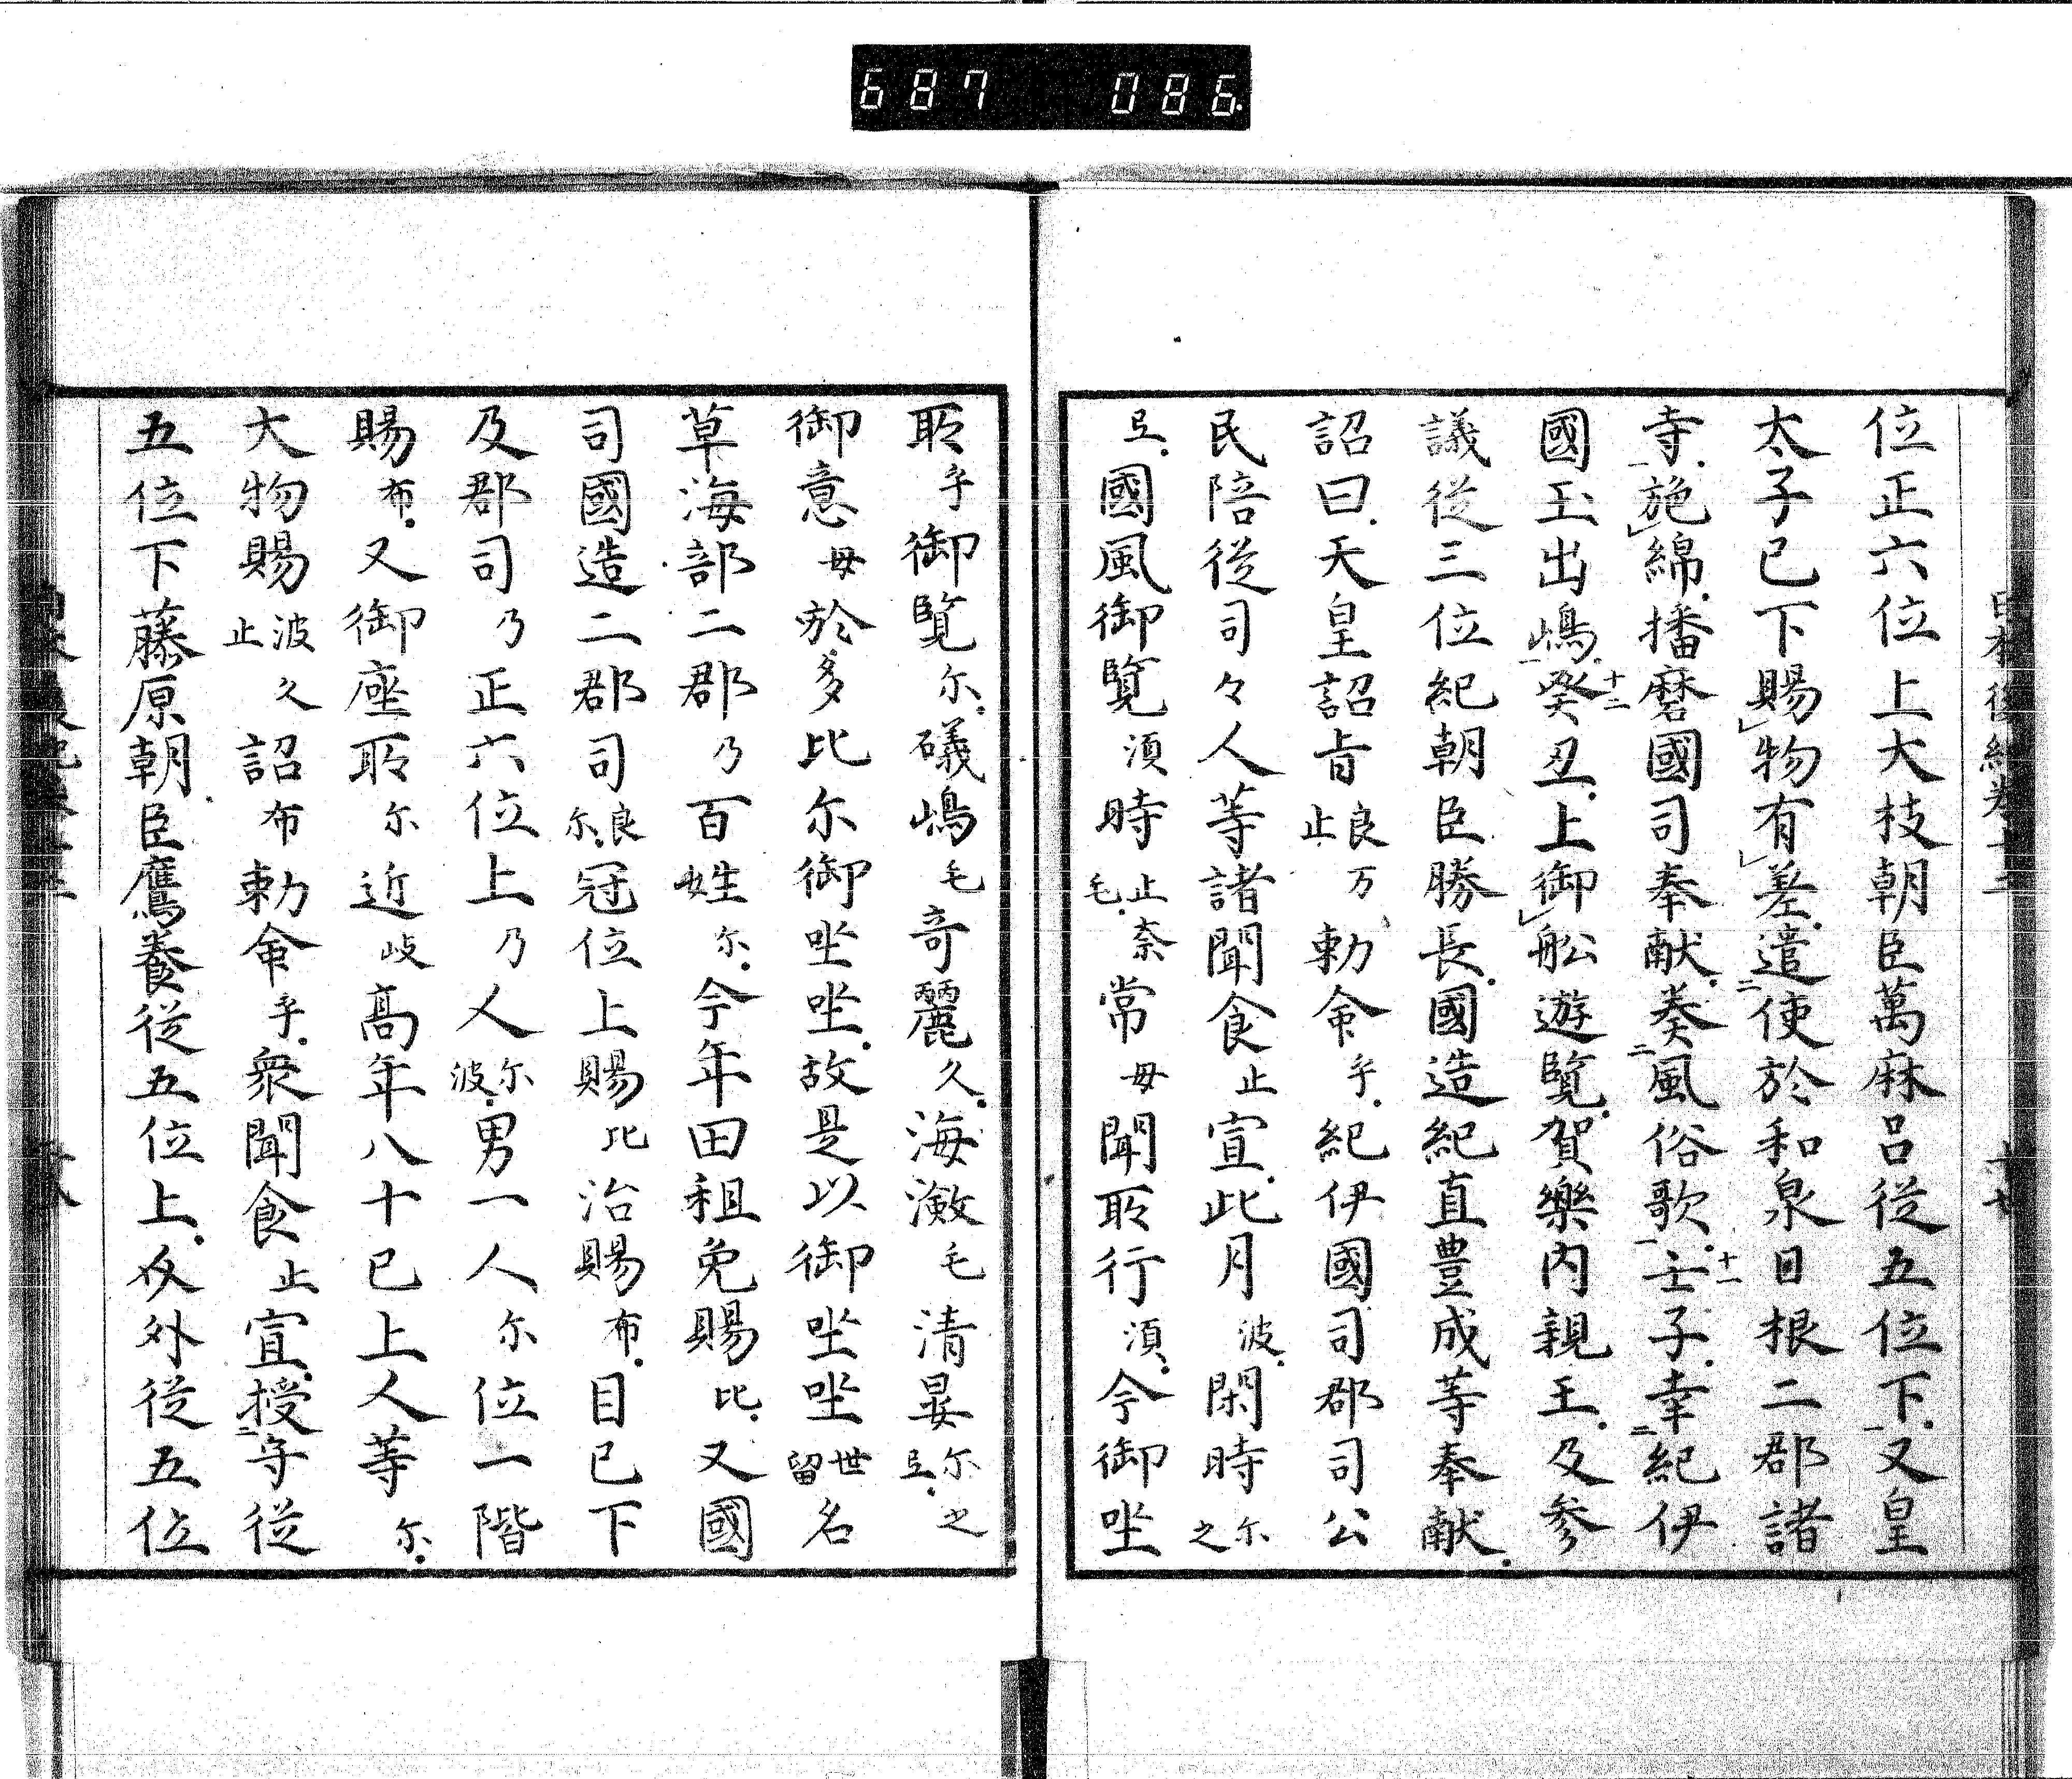 687 086
位正六位上大枝朝臣萬麻呂從五位下又皇
太子已下賜物有差遣使於和泉日根二郡諸
寺施綿播磨國司奉献奏風俗歌壬子幸紀伊
國玉出嶋癸丑上御舩遊覽賀樂内親王及参
議從三位紀朝臣勝長國造紀直豊成等奉献
詔曰天皇詔旨良万止勅命乎紀伊國司郡司公
民陪從司々人等諸聞食止宣此月波閑時尓之
弖國風御覽湏時止奈毛常毋聞所行湏今御坐
所乎御覽尓礒嶋毛奇麗久海瀲毛清晏尓之弖
御意毋於多比尓御坐坐故是以御坐坐世留名
草海部二郡乃百姓尓今年田租免賜比又國
司國造二郡司良尓冠位上賜比治賜布目已下
及郡司乃正六位上乃人尓波男一人尓位一階
賜布又御座所尓近岐高年八十已上人等尓
大物賜波久止詔布勅命乎衆聞食止宣授守從
五位下藤原朝臣鷹養從五位上介外從五位